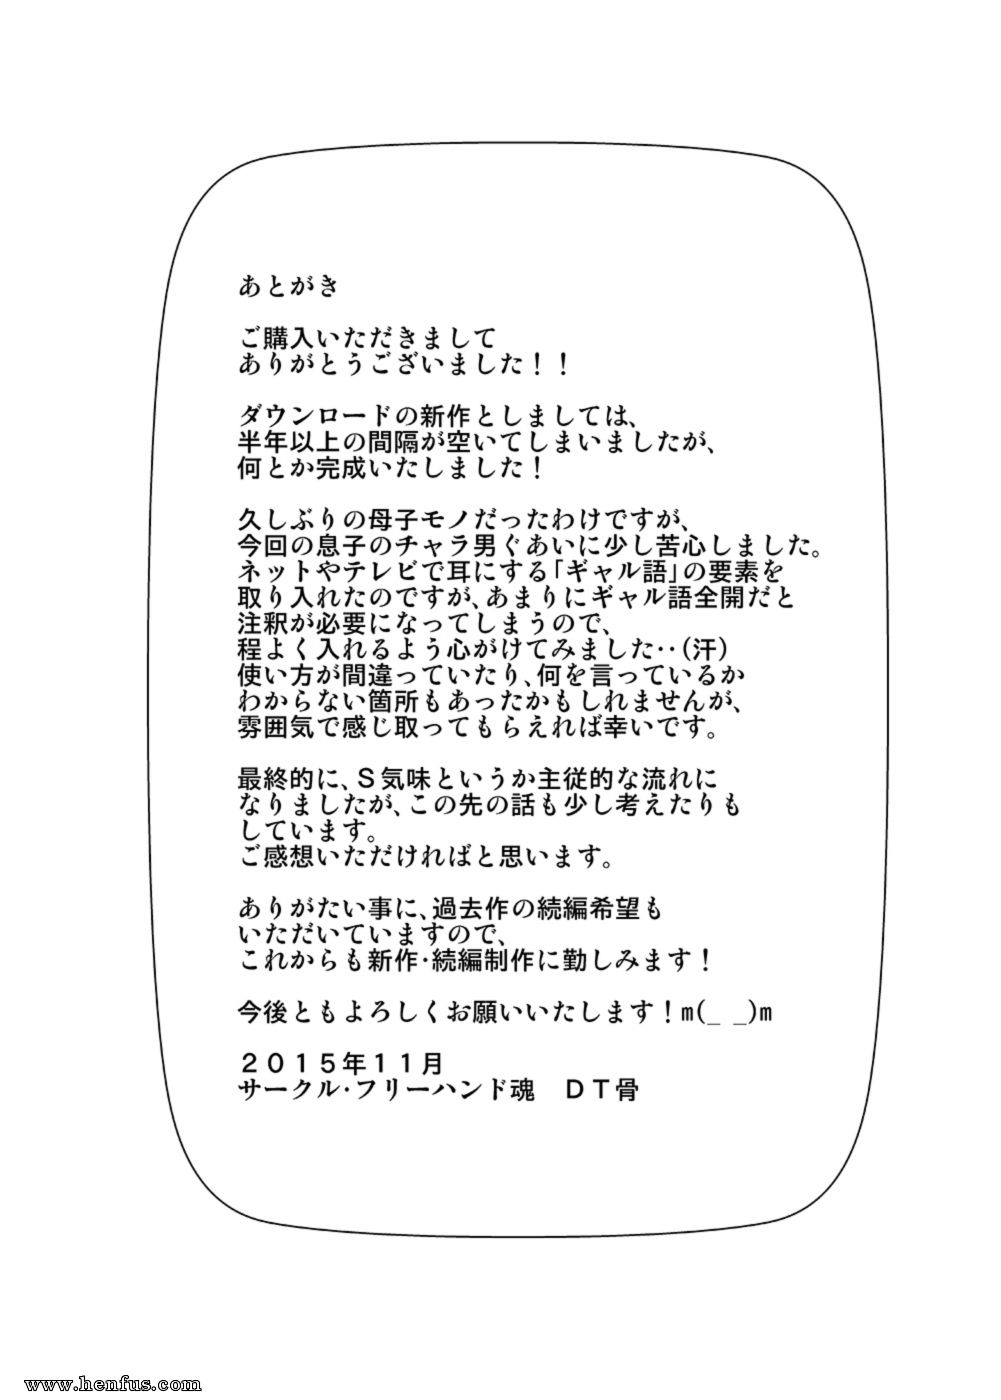 あとがき
ご購入いただきまして
ありがとうございました！！
ダウンロードの新作としましては、
半年以上の間隔が空いてしまいましたが、
何とか完成いたしました！
久しぶりの母子モノだったわけですが、
今回の息子のチャラ男ぐあいに少し苦心しました。
ネットやテレビで耳にする「ギャル語」の要素を
取り入れたのですが、あまりにギャル語全開だと
注釈が必要になってしまうので、
程よく入れるよう心がけてみました‥(汗)
使い方が間違っていたり、何を言っているか
わからない箇所もあったかもしれませんが、
雰囲気で感じ取ってもらえれば幸いです。
最終的に、Ｓ気味というか主従的な流れに
なりましたが、この先の話も少し考えたりも
しています。
ご感想いただければと思います。
ありがたい事に、過去作の続編希望も
いただいていますので、
これからも新作・続編制作に勤しみます！
今後ともよろしくお願いいたします！m(_ _)m
２０１５年１１月
サークル・フリーハンド魂　ＤＴ骨
www.henfus.com